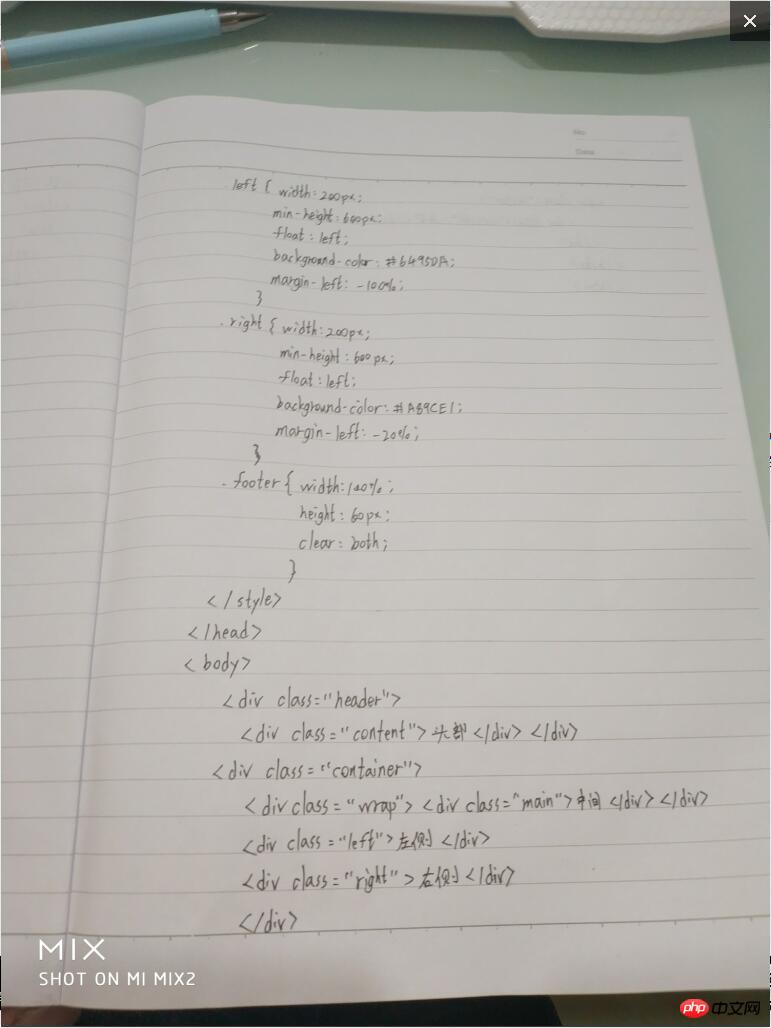 No
Date
.left { width: 200px;
min-height: 600px;
float: left;
background-color: #6495DA;
margin-left: -100%;
}
.right { width: 200px;
min-height: 600px;
float: left;
background-color: #A89CE1;
margin-left: -20%;
}
.footer { width: 100%;
height: 60px;
clear: both;
}
</style>
</head>
<body>
<div class="header">
<div class="content">头部</div> </div>
<div class="container">
<div class="wrap"> <div class="main">中间</div> </div>
<div class="left">左侧</div>
<div class="right">右侧</div>
</div>
MIX
SHOT ON MI MIX2
php中文网